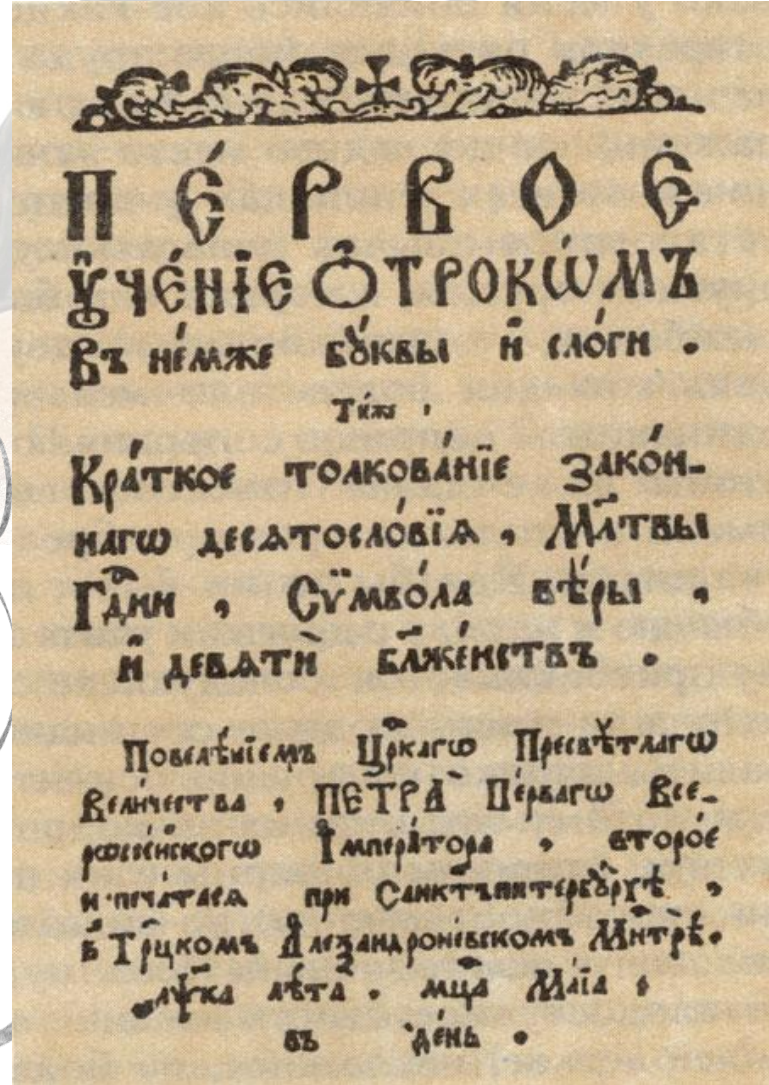 ПЕ́РВОЕ
Ѹ҆че́нїе Ѻ҆трокѡ́мъ
Въ не́мже бꙋ́квы и҆ сло́ги .
Та́же ,
Кра́ткое толкова́нїе Зако́н-
нагѡ десѧтосло́вїѧ , Мл҃твы
Гдⷭ҇ни , Сѷмво́ла вѣ́ры ,
и҆ девѧти́ бл҃же́нствъ .
Повелѣ́нїемъ Цр҃кагѡ Пресвѣ́тлагѡ
Вели́чества , ПЕТРА̀ Пе́рвагѡ Все-
рѡссі́йскогѡ І҆мпера́тора , второ́е
и҆печа́тасѧ при Санктъпитербꙋ́рхѣ ,
в̾ Трⷪ҇цкомъ А҆леѯандроне́вскомъ Мн҃трѣ̀.
҂аѱк҃а лѣ́та . мц҃а Маі́а .
въ де́нь .